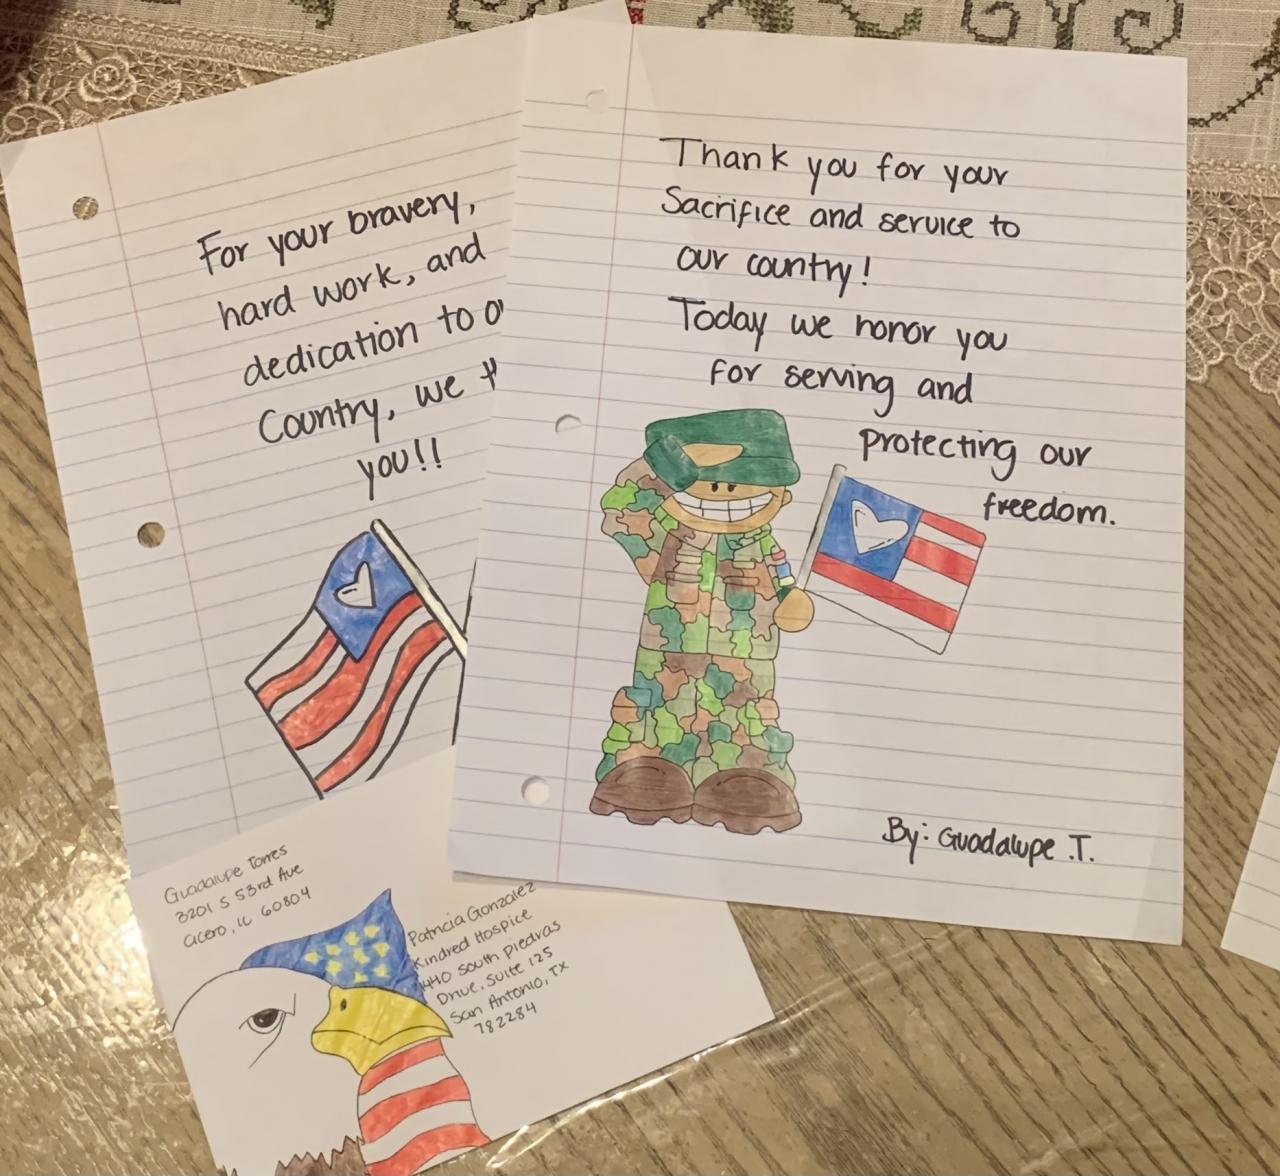 For your bravery,
hard work, and
dedication to o
Country, we
you!!
Thank you for your
Sacrifice and service to
our country!
Today we honor you
for serving and
protecting our
freedom.
By: Guadalupe .T.
Guadalupe Torres
3201 S 53rd Ave
Cicero, IL 60804
Patricia Gonzalez
Kindred Hospice
440 South Piedras
Drive, Suite 125
San Antonio, TX
782284